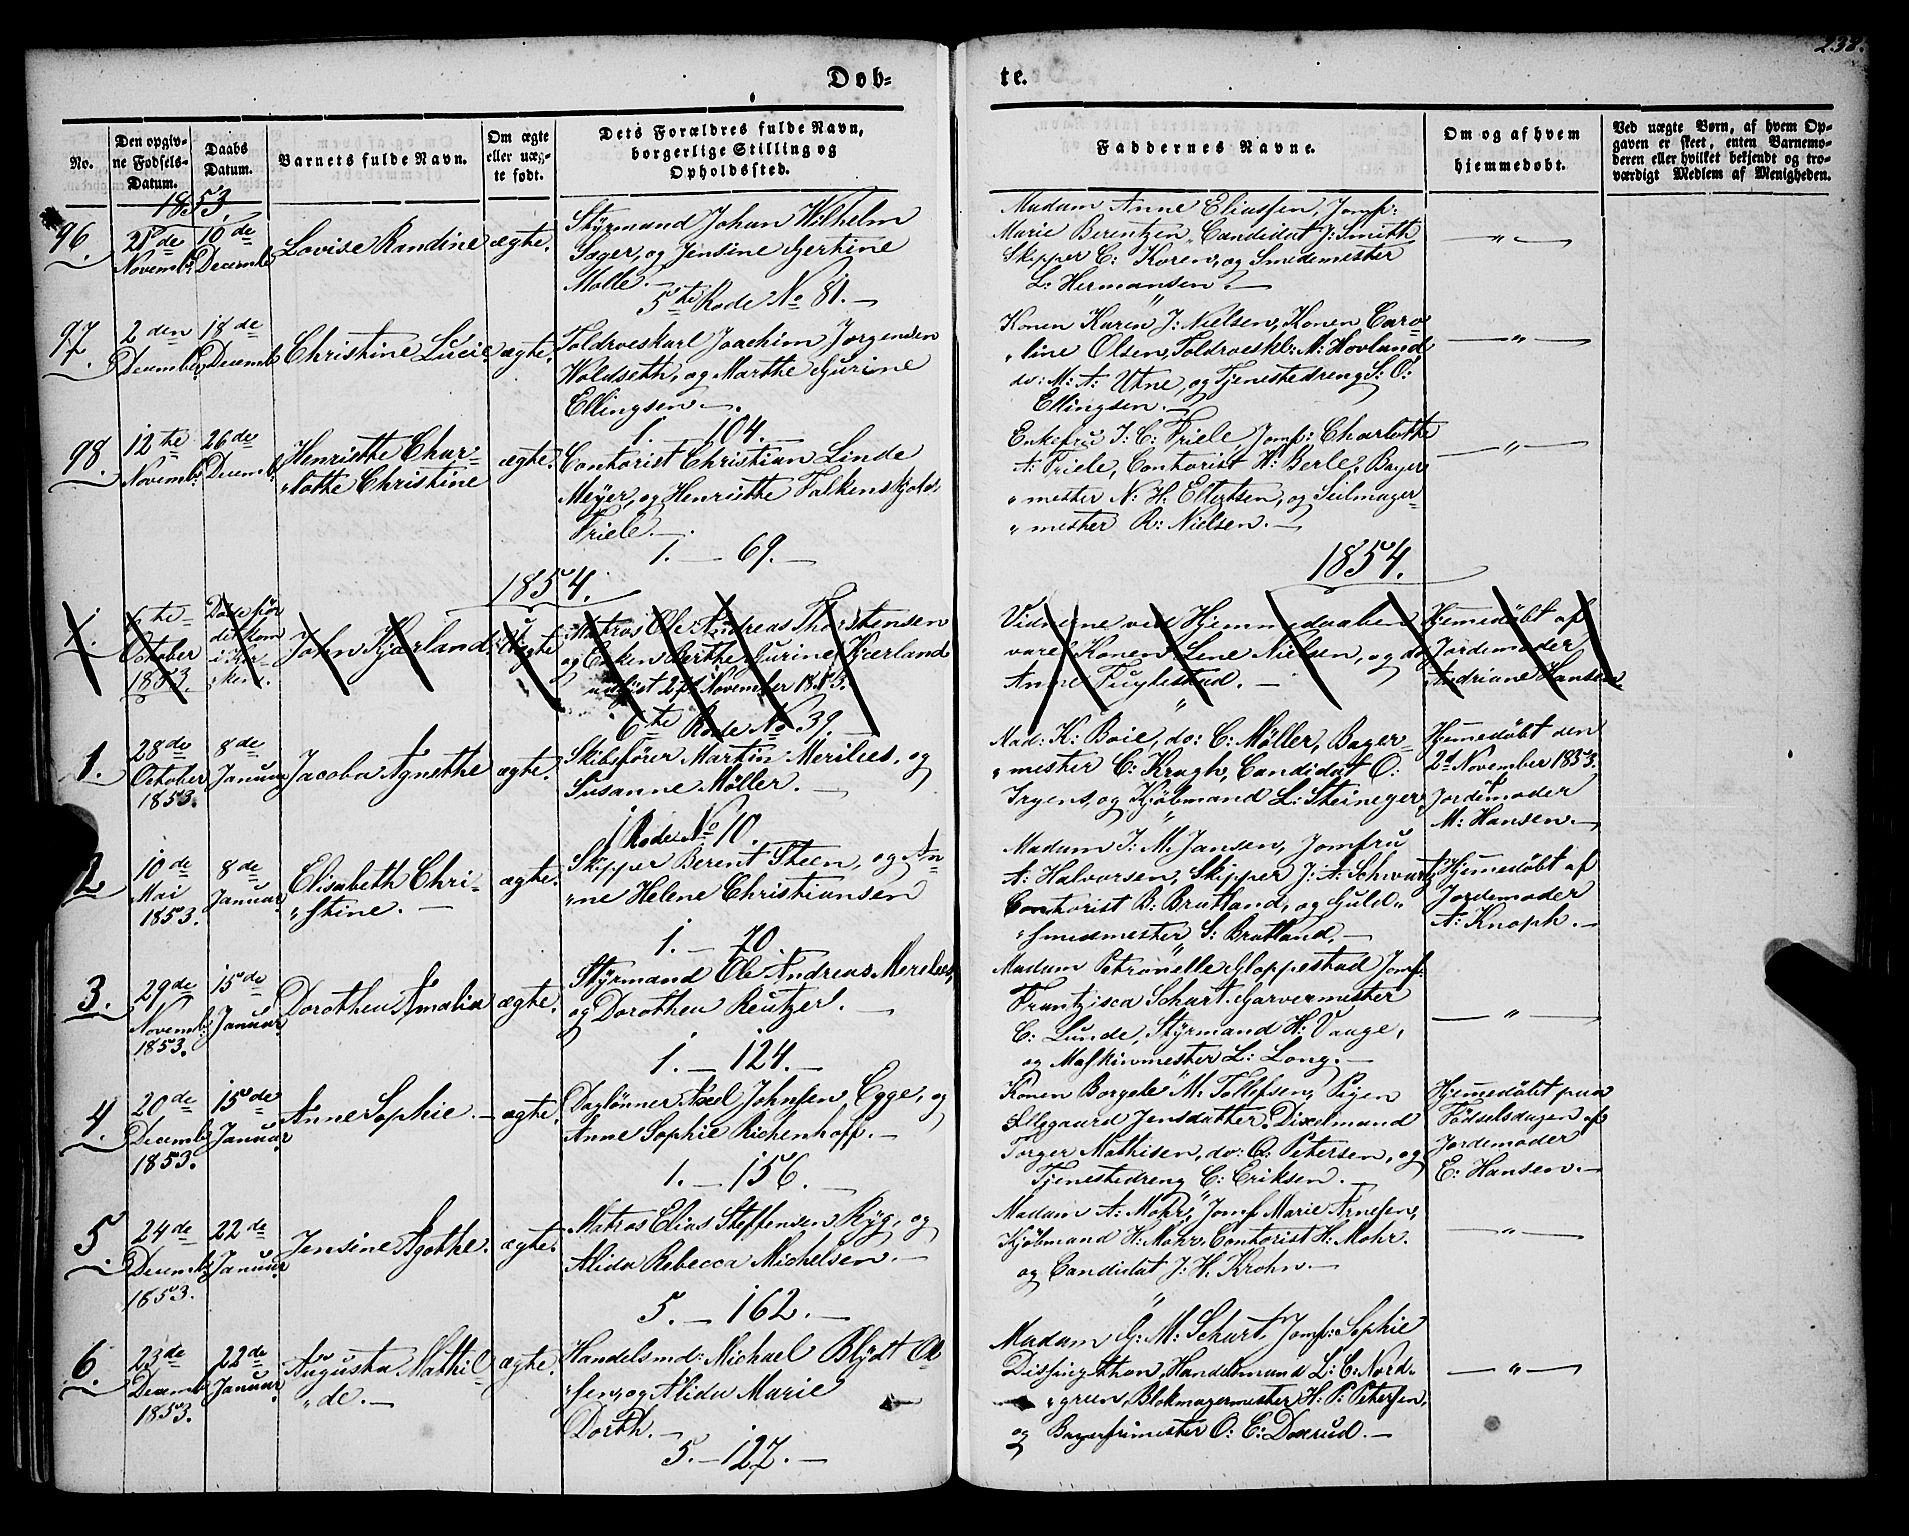 238.
Døb-
te.
No.
Den opgiv-
ne Fødsels-
Datum.
Daabs
Datum.
Barnets fulde Navn.
Om ægte
eller uæg-
te født.
Dets Forældres fulde Navn,
borgerlige Stilling og
Opholdssted.
Faddernes Navne.
Om og af hvem
hjemmedøbt.
Ved uægte Børn, af hvem Op-
gaven er skeet, enten Barnemo-
deren eller hvilket bekjendt og tro-
værdigt Medlem af Menigheden.
1853.
96.
Novemb:
10de
Decemb:
Lovise Randine
ægte.
Styrmand Johan Wilhelm
og Jensine Gertine
Molle.
5te Rode No 81.
Madam Anne Eliassen, Jomf:
Marie Berentzen, Candidat J: Smith
Skipper C: Koren, og Smedemester
L: Hermansen.
"
97.
2den
Decemb:
18de
Decemb:
Christine Lucie
ægte.
Toldroeskarl Joachim Jørgensen
Woldseth, og Marthe Gurine
Ellingsen.
1. 104.
Konen Karen J: Nielsen, Konen Caro-
"line Olsen, Toldroeskl: M: Hovland,
do: M: A: Utne, og Tjenestedreng S: O:
Ellingsen.
"
98.
12te
Novemb:
26de
Decemb:
Henriette Char-
"lotte Christine
ægte.
Contorist Christian Linde
Meyer, og Henriette Falkenskjold
Friele.
1. 69.
Enkefru J: C: Friele, Jomf: Charlotte
A: Friele, Contorist H: Berle, Bager
"mester N: H: Eltertsen, og Seilmager
"mester R: Nielsen.
"
1854.
1854.
1.
6te
October
1853.
Døde før
det kom
i Kir-
ken.
John Kjærland
Uægte
Matros Ole Andreas Thorstensen
og Enken Berthe Gurine Kjærland
November 1853.
6te Rode No 39.
Vidnerne ved Hjemmedaaben
vare Konen Lene Nielsen, og do
Anne Fuglestad.
Hjemedøbt af
Jordemoder
Andriane Hansen
1.
28de
October
1853.
8de
Januar
Jacoba Agnethe
ægte.
Skibsfører Martin Merilees, og
Susanne Møller.
1 Rode No 10.
Mad: K: Boie, do: C: Møller, Bager-
"mester C: Krogh, Candidat O:
Irgens, og Kjøbmand L: Steineger
Hjemedøbt den
2d November 1853.
af
Jordemoder
M: Hansen.
2
10de
Mai
1853.
8de
Januar
Elisabeth Chri-
"stine.
ægte.
Skipper Berent Steen, og An-
"ne Helene Christiansen
1. 70.
Madam J: M: Jansen, Jomfru
A: Halvorsen, Skipper J: A: Schwartz
Contorist B: Bratland, og Guld-
"smedmester S: Bratland.
Hjemedøbt af
Jordemoder
A: Knoph.
3.
29de
Novemb:
1853.
15de
Januar
Dorothea Amalia
ægte.
Styrmand Ole Andreas Merilees,
og Dorothea Reutzer.
1. 124.
Madam Petronelle Gloppestad, Jomf:
Frantzisca Schart, Garvermester
C: Lunde, Styrmand H: Vaage,
og Maskinmester L: Long.
"
4.
20de
Decemb:
1853.
15de
Januar
Anne Sophie.
ægte.
Daglønner Axel Johnsen Egge, og
Anne Sophie Richenhoff.
1. 156.
Konen Borgele M: Tollefsen, Pigen
Ellegaard Jensdatter, Dixelmand
Torger Mathisen, do: O: Petersen, og
Tjenestedreng C: Eriksen.
Hjemedøbt paa
Fødselsdagen af
Jordemoder
E: Hansen.
5.
24de
Decemb:
1853.
22de
Januar
Jensine Agathe.
ægte.
Matros Elias Steffensen Ryg, og
Alida Rebecca Michelsen.
5. 162.
Madam A: Mohr, Jomf Marie Arnesen,
Kjøbmand H: Mohr, Contorist H: Mohr.
og Candidat J: H: Krohn.
"
6.
23de
Decemb:
1853.
22de
Januar
Augusta Mathil-
"de.
ægte.
Handelsmd: Michael Blydt Ol-
"sen, og Alida Marie
Dorth.
5. 127.
Madam G: M: Schart, Jomf: Sophie
Handelsmand L: C: Nord-
"green, Blokmagermester H: P: Petersen,
og
"